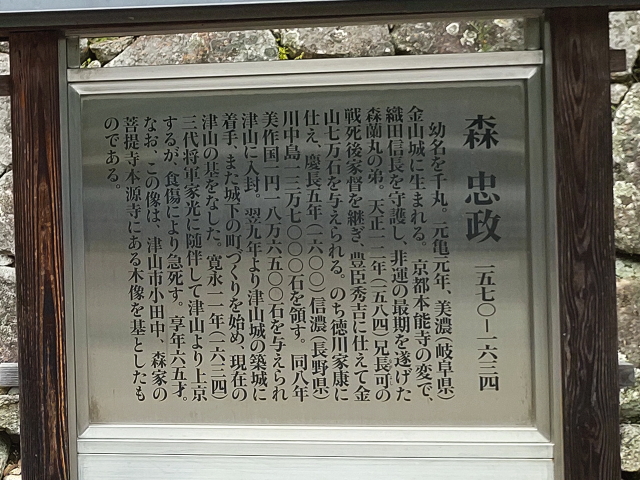 森 忠政 一五七〇―一六三四
幼名を千丸。元亀元年、美濃(岐阜県)
金山城に生まれる。京都本能寺の変で、
織田信長を守護し、非運の最期を遂げた
森蘭丸の弟。天正一二年(一五八四)兄長可の
戦死後家督を継ぎ、豊臣秀吉に仕えて金
山七万石を与えられる。のち徳川家康に
仕え、慶長五年(一六〇〇)信濃(長野県)
川中島一三万七〇〇〇石を領す。同八年
美作国一円一八万六五〇〇石を与えられ
津山に入封。翌九年より津山城の築城に
着手、また城下の町づくりを始め、現在の
津山の基をなした。寛永一一年(一六三四)
三代将軍家光に随伴して津山より上京
するが、食傷により急死す。享年六五才。
なお、この像は、津山市小田中、森家の
菩提寺本源寺にある木像を基としたも
のである。